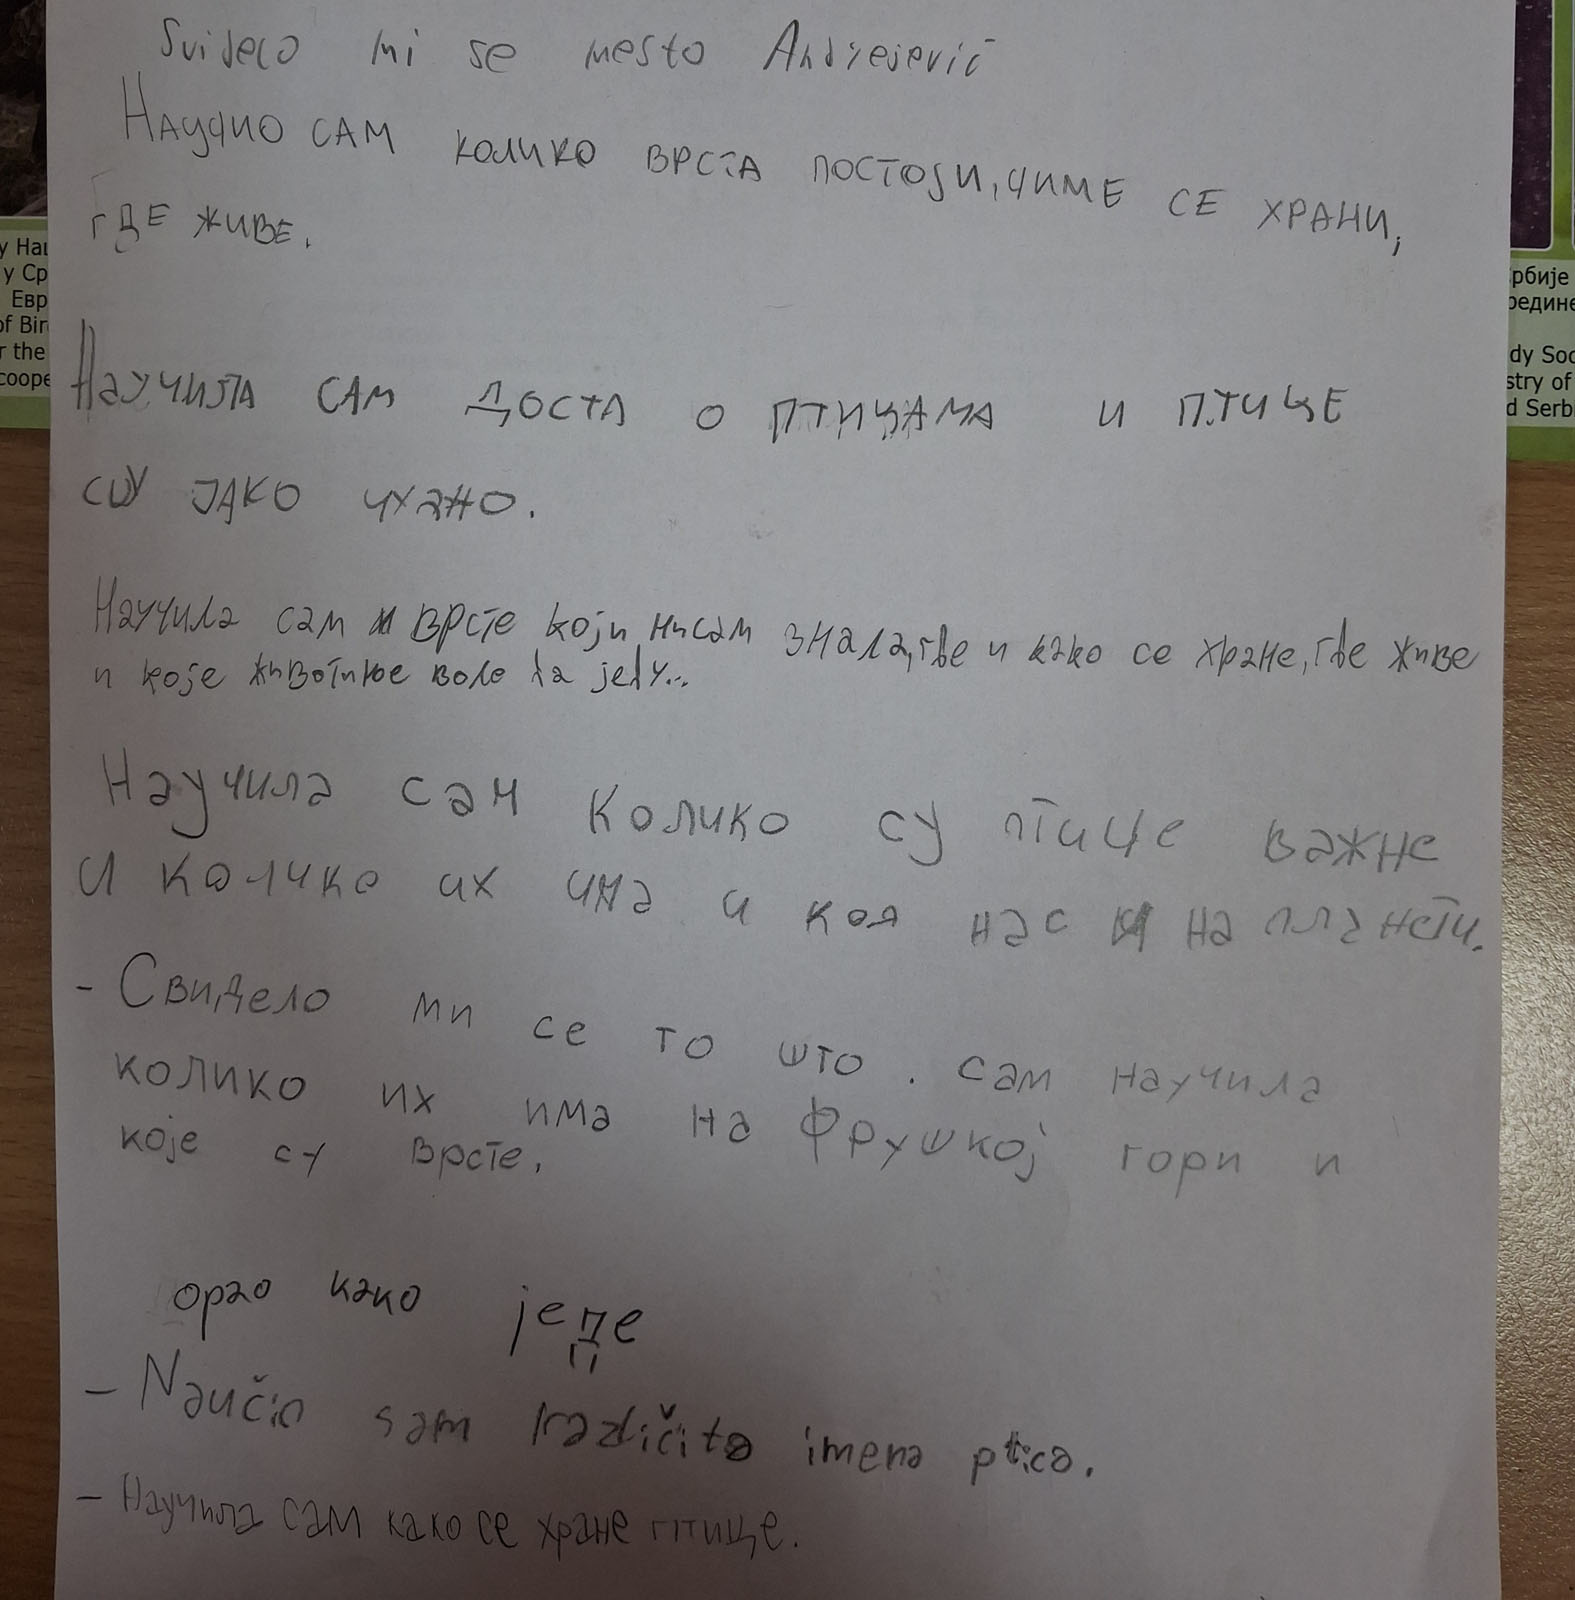 Svidelo mi se mesto Andrejević
Научио сам колико врста постоји, чиме се храни,
где живе.
Научила сам доста о птицама и птице
су јако
Научила сам врсте који нисам знала, где и како се хране, где живе
и које животиње воле да једу...
Научила сам колико су птице важне
и колико их има и код нас и на планети.
- Свидело ми се то што сам научила
колико их има на Фрушкој гори и
које су врсте.
орао како једе
- Naučio sam različita imena ptica.
- Научила сам како се хране птице.
у Нац
у Ср
Евр
of Bir
r the
coope
рбије
редине
dy Soc
stry of
d Serb